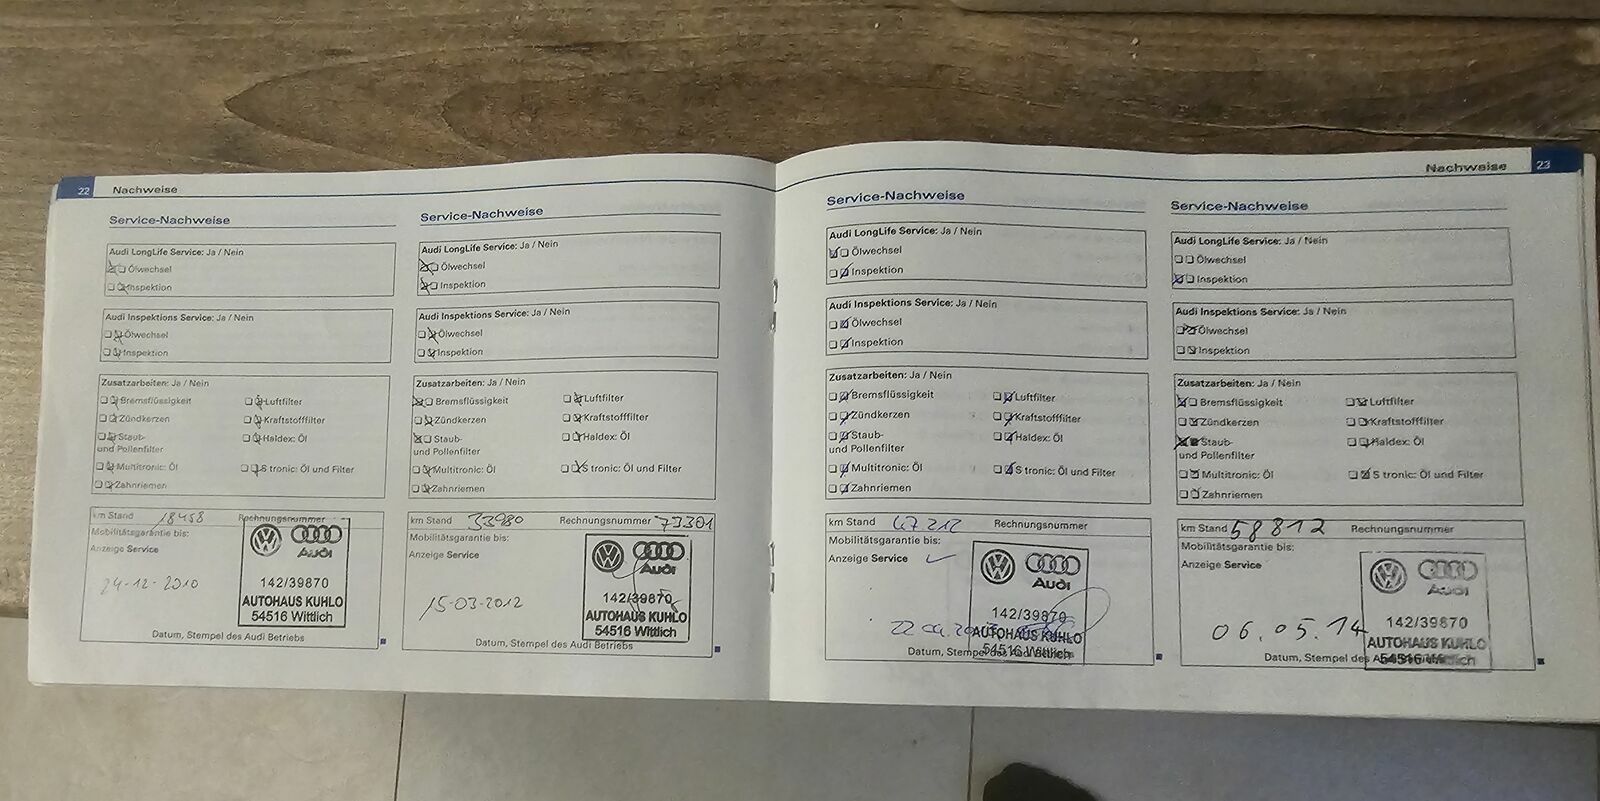 22 Nachweise
Service-Nachweise
Audi LongLife Service: Ja / Nein
Ölwechsel
Inspektion
Audi Inspektions Service: Ja / Nein
Ölwechsel
Inspektion
Zusatzarbeiten: Ja / Nein
Bremsflüssigkeit Luftfilter
Zündkerzen Kraftstofffilter
Staub- Haldex: Öl
und Pollenfilter
Multitronic: Öl S tronic: Öl und Filter
Zahnriemen
km Stand 18458 Rechnungsnummer
Mobilitätsgarantie bis:
Anzeige Service
Audi
24-12-2010
142/39870
AUTOHAUS KUHLO
54516 Wittlich
Datum, Stempel des Audi Betriebs
Service-Nachweise
Audi LongLife Service: Ja / Nein
Ölwechsel
Inspektion
Audi Inspektions Service: Ja / Nein
Ölwechsel
Inspektion
Zusatzarbeiten: Ja / Nein
Bremsflüssigkeit Luftfilter
Zündkerzen Kraftstofffilter
Staub- Haldex: Öl
und Pollenfilter
Multitronic: Öl S tronic: Öl und Filter
Zahnriemen
km Stand 33980 Rechnungsnummer 73301
Mobilitätsgarantie bis:
Anzeige Service
Audi
15-03-2012
142/39870
AUTOHAUS KUHLO
54516 Wittlich
Datum, Stempel des Audi Betriebs
Nachweise 23
Service-Nachweise
Audi LongLife Service: Ja / Nein
Ölwechsel
Inspektion
Audi Inspektions Service: Ja / Nein
Ölwechsel
Inspektion
Zusatzarbeiten: Ja / Nein
Bremsflüssigkeit Luftfilter
Zündkerzen Kraftstofffilter
Staub- Haldex: Öl
und Pollenfilter
Multitronic: Öl S tronic: Öl und Filter
Zahnriemen
km Stand 47212 Rechnungsnummer
Mobilitätsgarantie bis:
Anzeige Service
Audi
142/39870
AUTOHAUS KUHLO
54516 Wittlich
Datum, Stempel des Audi Betriebs
Service-Nachweise
Audi LongLife Service: Ja / Nein
Ölwechsel
Inspektion
Audi Inspektions Service: Ja / Nein
Ölwechsel
Inspektion
Zusatzarbeiten: Ja / Nein
Bremsflüssigkeit Luftfilter
Zündkerzen Kraftstofffilter
Staub- Haldex: Öl
und Pollenfilter
Multitronic: Öl S tronic: Öl und Filter
Zahnriemen
km Stand 58812 Rechnungsnummer
Mobilitätsgarantie bis:
Anzeige Service
Audi
06.05.14
142/39870
AUTOHAUS KUHLO
54516 Wittlich
Datum, Stempel des Audi Betriebs